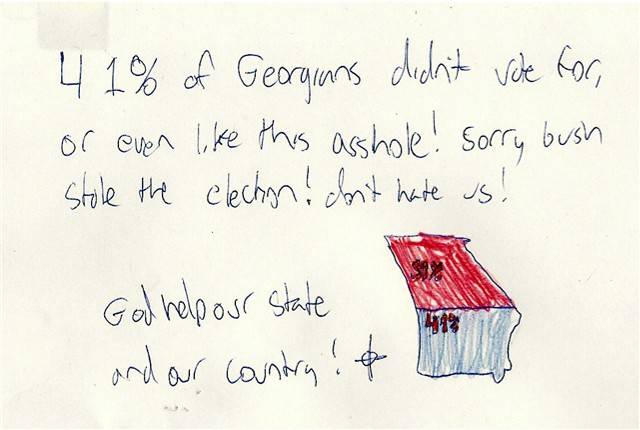 41% of Georgians didn't vote for,
or even like this asshole! Sorry bush
stole the election! don't hate us!
59%
41%
God help our state
and our country!